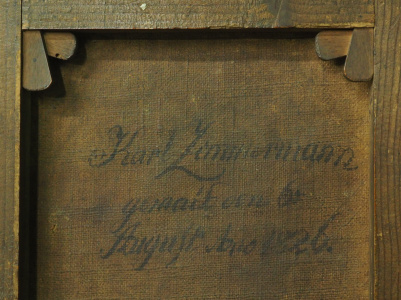 Karl Zimmermann
gemalt den 6
August Ano 1826.